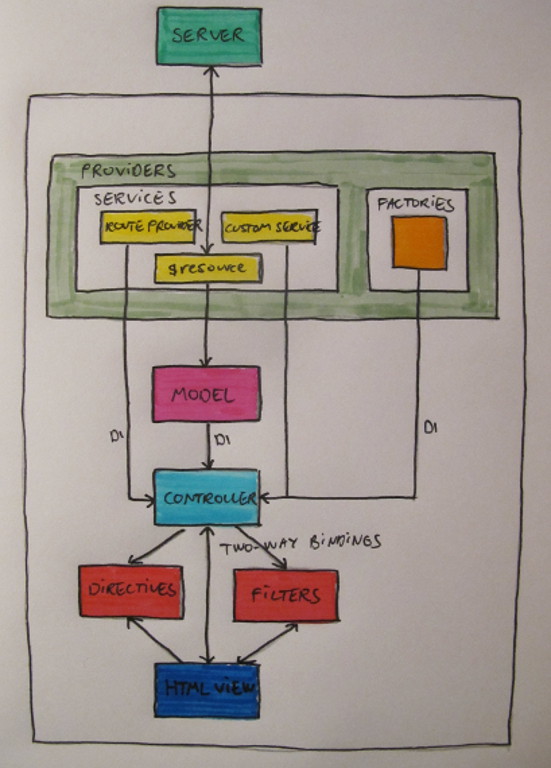 SERVER
PROVIDERS
SERVICES
FACTORIES
ROUTE PROVIDER
CUSTOM SERVICE
$resource
MODEL
DI
DI
DI
CONTROLLER
TWO-WAY BINDINGS
DIRECTIVES
FILTERS
HTML VIEW